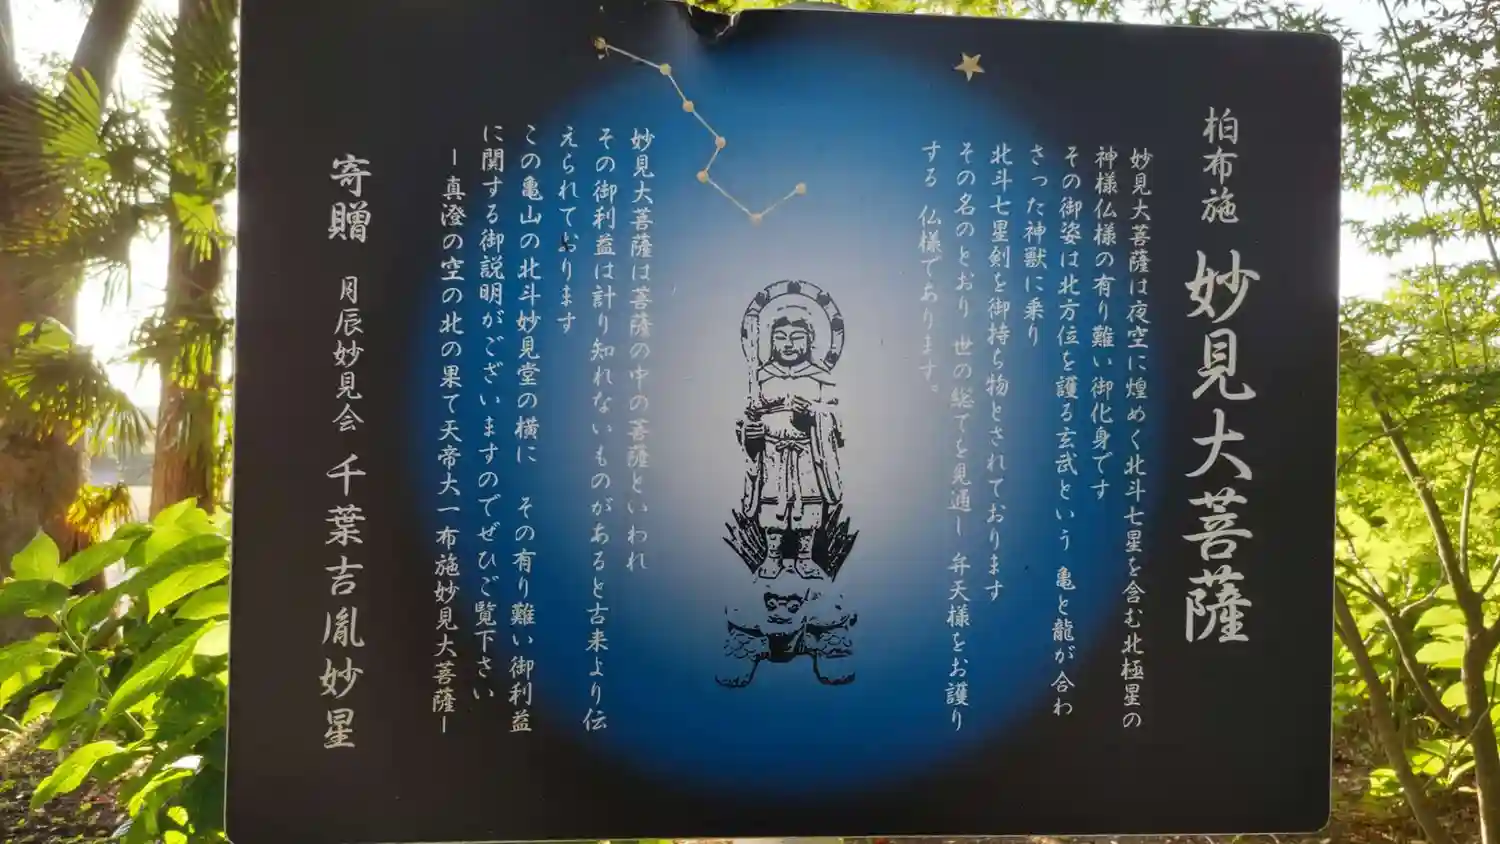 柏布施 妙見大菩薩
妙見大菩薩は夜空に煌めく北斗七星を含む北極星の
神様仏様の有り難い御化身です
その御姿は北方位を護る玄武という 亀と龍が合わ
さった神獣に乗り
北斗七星剣を御持ち物とされております
その名のとおり 世の総てを見通し 弁天様をお護り
する 仏様であります。
妙見大菩薩は菩薩の中の菩薩といわれ
その御利益は計り知れないものがあると古来より伝
えられております
この亀山の北斗妙見堂の横に その有り難い御利益
に関する御説明がございますのでぜひご覧下さい
ー真澄の空の北の果て天帝大一布施妙見大菩薩ー
寄贈 月辰妙見会 千葉吉胤妙星